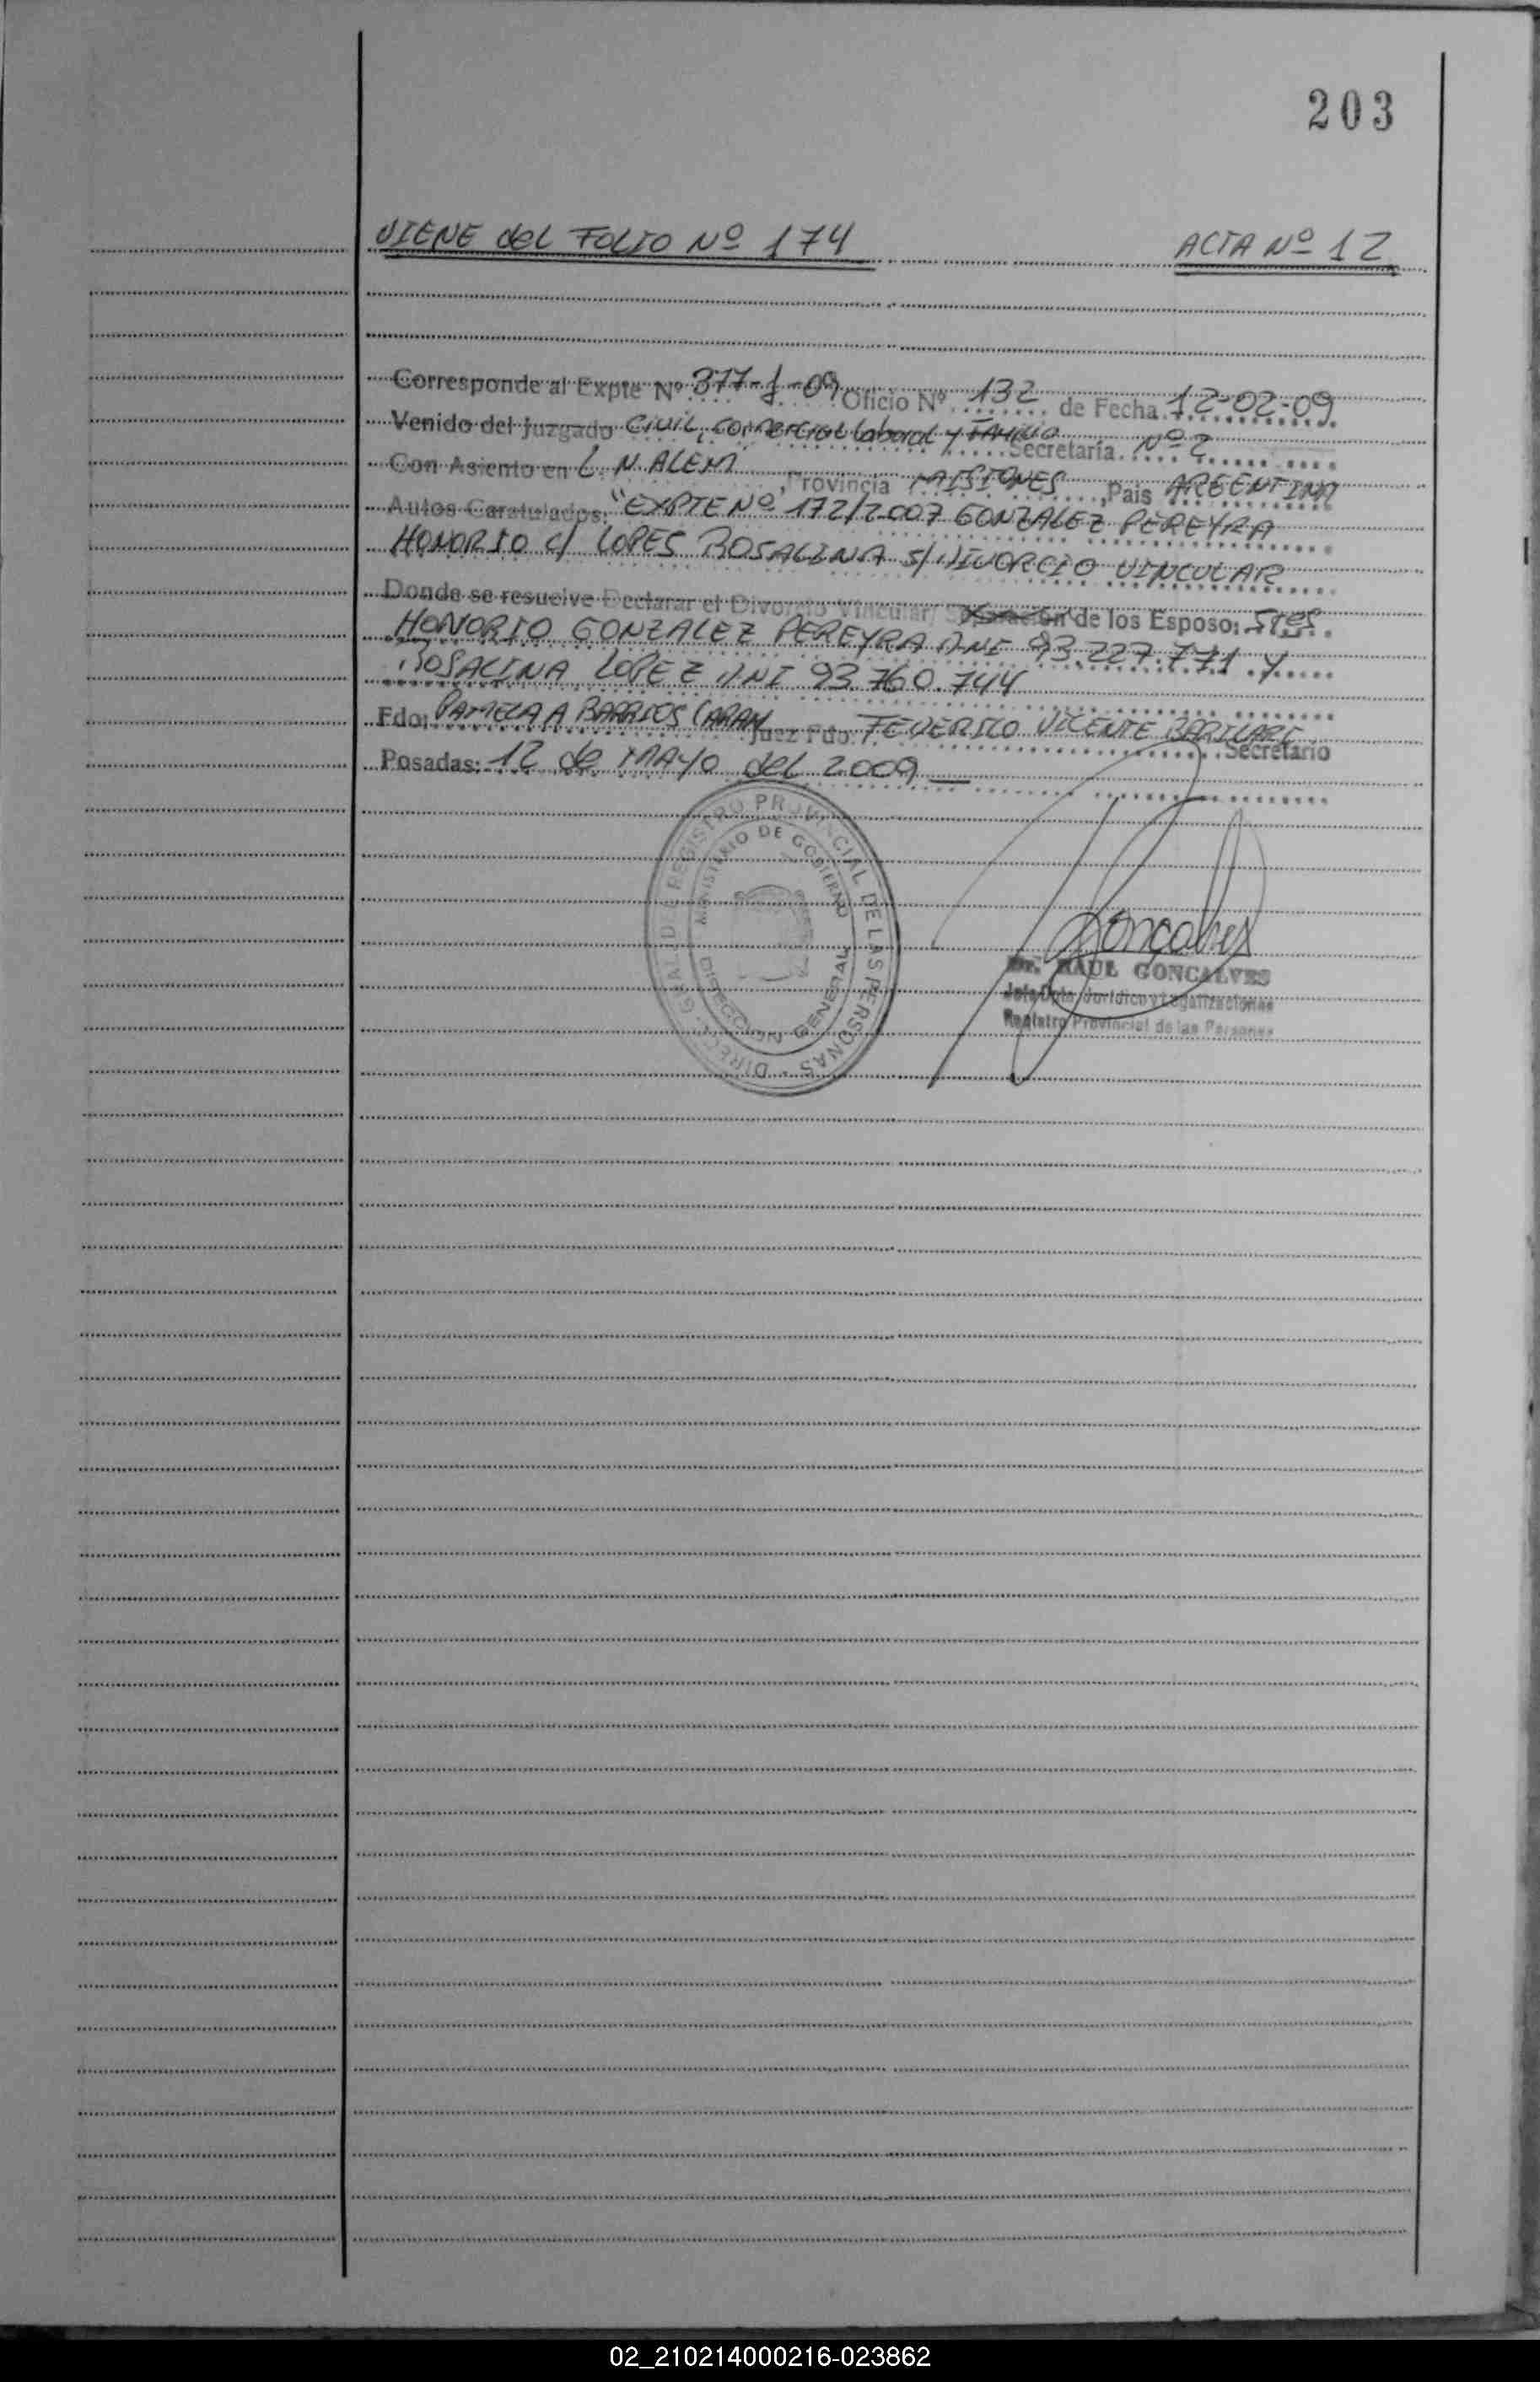 203
VIENE del FOLIO Nº 174 ACTA Nº 12
Corresponde al Expte Nº 377-J-09 Oficio Nº 132 de Fecha 12-02-09
Venido del Juzgado Civil, Comercial Laboral y Familia Secretaría Nº 2
Con Asiento en L. N. ALEM, Provincia MISIONES, Pais ARGENTINA
Autos Caratulados: "EXPTE Nº 172/2007 GONZALEZ PEREYRA
HONORIO C/ LOPES ROSALINA S/ DIVORCIO VINCULAR
Donde se resuelve Declarar el Divorcio Vincular/ Separación de los Esposo: Sres.
HONORIO GONZALEZ PEREYRA DNI 93.227.771 Y
ROSALINA LOPEZ DNI 93.760.744
Fdo: PAMELA A BARRIOS CARAM Juez Fdo. FEDERICO VICENTE BARILARI Secretario
Posadas: 12 de MAYO del 2009
DIRECC. GRAL. DEL REGISTRO PROVINCIAL DE LAS PERSONAS
MINISTERIO DE GOBIERNO
DIRECCION GENERAL
Goncalves
Dr. RAUL GONCALVES
Jefe Dpto. Jurídico y Legalizaciones
Registro Provincial de las Personas
02_210214000216-023862